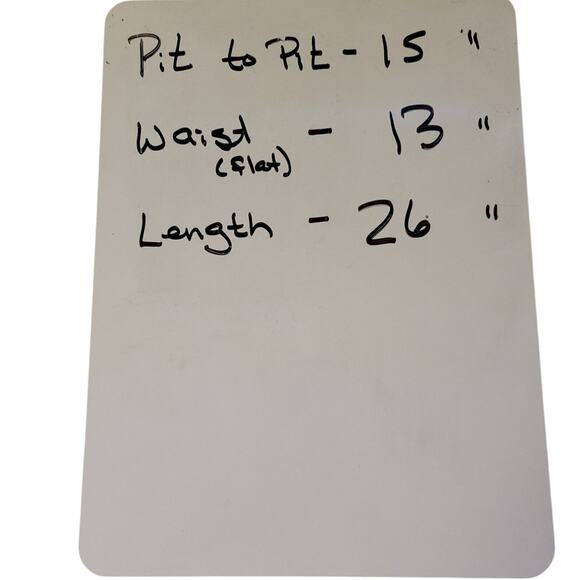 Pit to Pit - 15 "
Waist - 13 "
(flat)
Length - 26 "